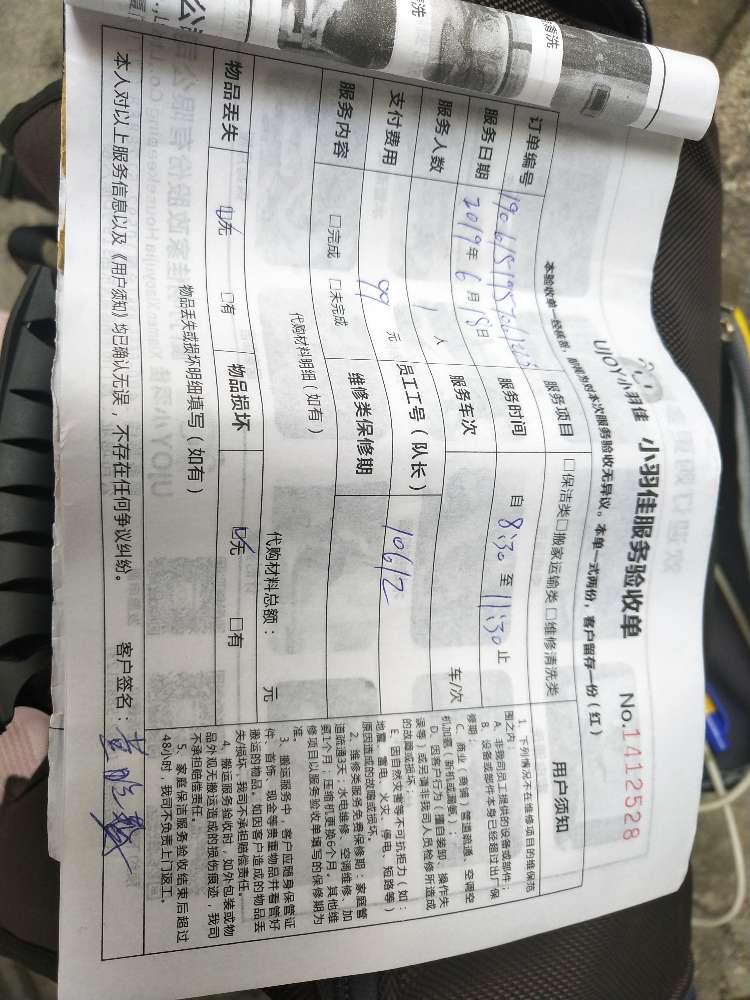 UJOY小羽佳 小羽佳服务验收单 No.1412528
本单一式两份，客户留存一份（红）
订单编号
服务项目 □保洁类□搬家运输类□维修清洗类
服务日期 2019年6月18日
服务时间 自 8:30 至 11:30 止
服务人数 1 人
服务车次 车/次
支付费用 99 元
员工工号（队长） 10612
服务内容 □完成 □未完成
维修类保修期
代购材料明细（如有）
代购材料总额： 元
物品丢失 ☑无 □有
物品损坏 ☑无 □有
物品丢失或损坏明细填写（如有）
用户须知
1、下列情况不在维修项目的维保范
围之内：
A、非我司员工提供的设备或部件；
B、设备或部件本身已经超过出厂保
修期；
C、商业（商铺）管道疏通、空调空
机加氨、新机或漏氨）；
D、因客户行为（擅自装卸、操作失
误等）或另请非我司人员检修所造成
的故障或损坏。
E、因自然灾害等不可抗拒力（如：
地震、雷电、火灾、停电、短路等）
原因造成的故障或损坏。
2、维修类服务免费保修期：家庭管
道疏通3天，水电维修、空调维修、加
氨1个月；压缩机更换6个月。其他维
修项目以服务验收单填写的保修期为
准。
3、搬运服务中，客户应随身保管证
件、首饰、现金等贵重物品并看管好
搬运的物品。如因客户造成的物品丢
失/损坏，我司不承担赔偿责任。
4、搬运服务验收时，如外包装或物
品外观无搬运造成的损伤痕迹，我司
不承担赔偿责任。
5、家庭保洁服务验收结束后超过
48小时，我司不负责上门返工。
本人对以上服务信息以及《用户须知》均已确认无误，不存在任何争议纠纷。 客户签名：